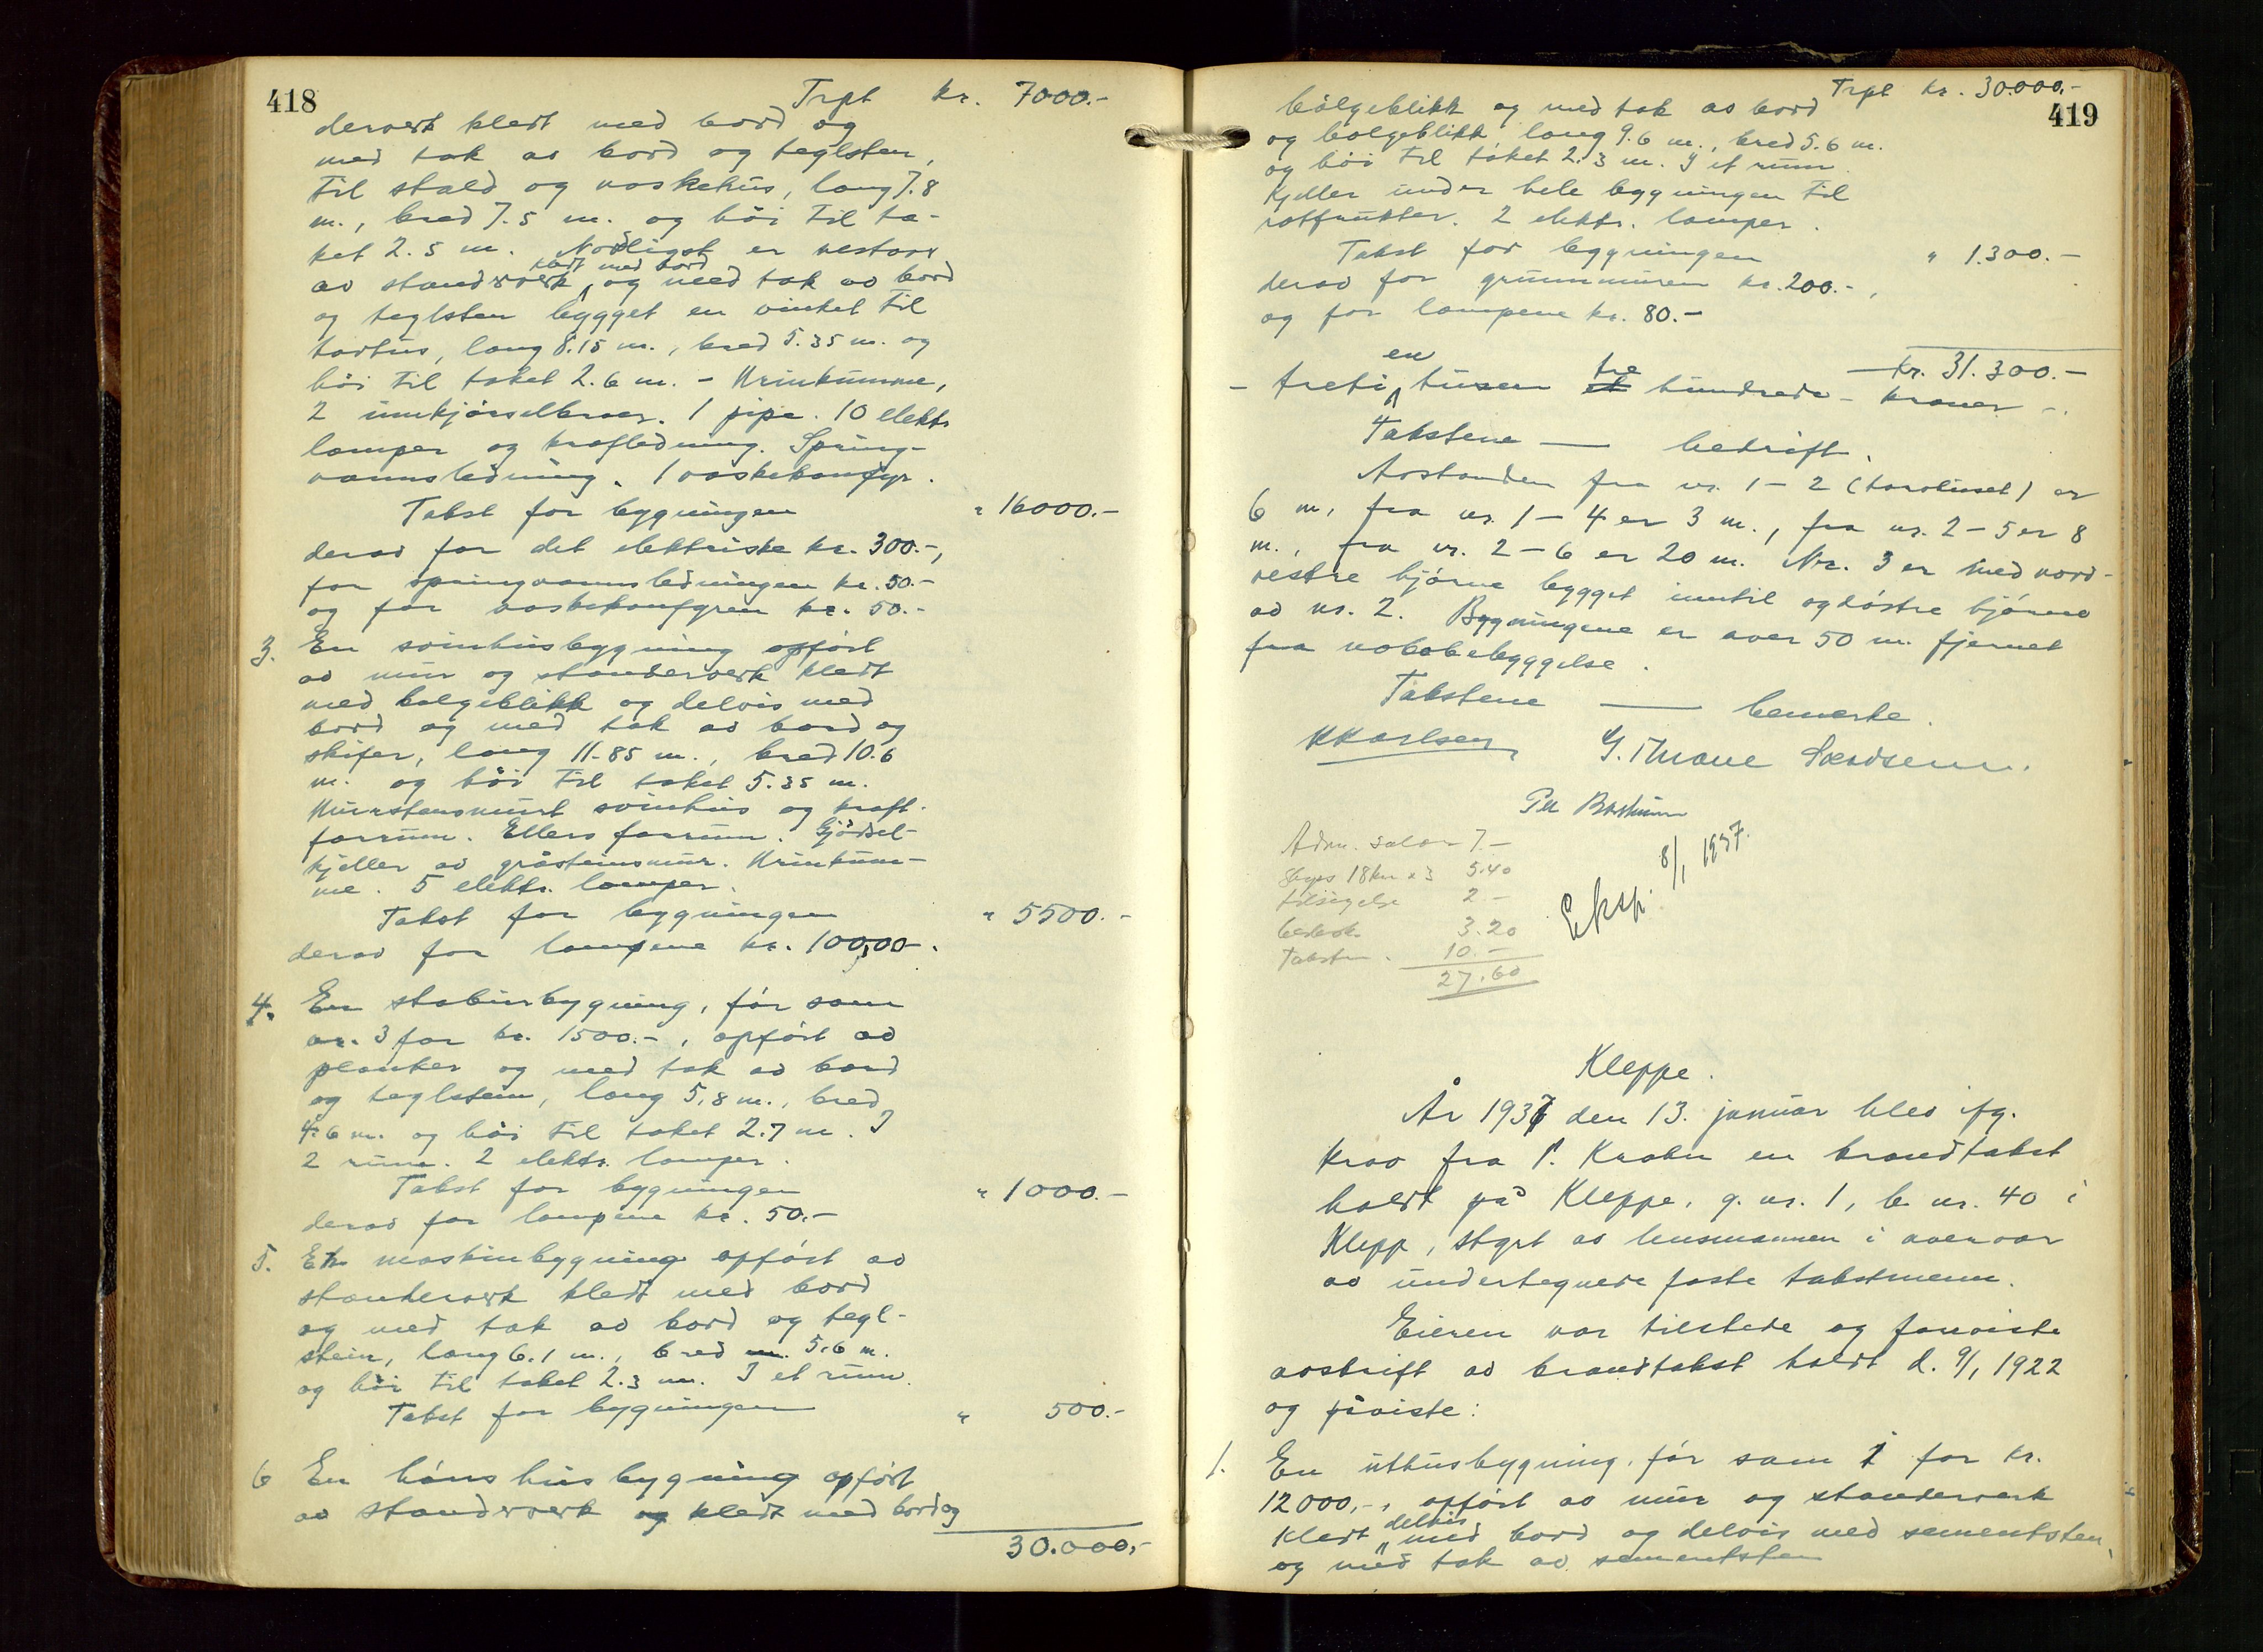 418
Trpt kr. 7000.-
derverk kledt med bord og
med tak av bord og teglsten,
til stald og vaskehus, lang 7.8
m., bred 7.5 m. og høi til ta-
ket 2.5 m. Nordligst er vestover
kledt med bord
av standerverk og med tak av bord
og teglsten bygget en vinkel til
torvhus, lang 8.15 m., bred 5.35 m. og
høi til taket 2.6 m. - Urinkumme,
2 innkjørselbroer. 1 pipe. 10 elektr
lamper og kraftledning. Spring-
vannsledning. 1 vaskekomfyr.
Takst for bygningen " 16000.-
derav for det elektriske kr. 300.-,
for springvannsledningen kr. 50.-
og for vaskekomfyren kr. 50.-
3. En svinhusbygning opført
av mur og standerverk kledt
med bølgeblikk og delvis med
bord og med tak av bord og
skifer, lang 11.85 m., bred 10.6
m. og høi til taket 5.35 m.
Murstensmurt svinhus og kraft-
forrum. Ellers forrum. Gjødsel-
kjeller av gråsteinsmur. Urinkum-
me. 5 elektr. lamper.
Takst for bygningen " 5500.-
derav for lampene kr. 100,00-.
4. En stabursbygning, før som
nr. 3 for kr. 1500.-, opført av
planker og med tak av bord
og teglstein, lang 5,8 m., bred
4.6 m. og høi til taket 2.7 m. I
2 rum. 2 elektr. lamper.
Takst for bygningen " 1000.-
derav for lampene kr. 50.-
5. En maskinbygning opført av
standerverk kledt med bord
og med tak av bord og tegl-
stein, lang 6.1 m., bred m. 5.6 m.
og høi til taket 2.3 m. I et rum.
Takst for bygningen " 500.-
6 En hønshusbygning opført
av standerverk og kledt med bord og
30.000,-
Trpt kr. 30.000.-
419
bølgeblikk og med tak av bord
og bølgeblikk, lang 9.6 m., bred 5.6 m.
og høi til taket 2.3 m. I et rum.
Kjeller under hele bygningen til
rotfrukter. 2 elektr. lamper.
Takst for bygningen " 1.300.-
derav for grunnmuren kr. 200.-,
og for lampene kr. 80.-
kr. 31.300.-
en tre
- treti tusen et hundrede - kroner -.
Takstene — bedrift.
Avstanden fra nr. 1 - 2 (torvhuset) er
6 m, fra nr. 1 - 4 er 3 m., fra nr. 2 - 5 er 8
m., fra nr. 2 - 6 er 20 m. Nr. 3 er med nord-
vestre hjørne bygget inntil østre hjørne
av nr. 2. Bygningene er over 50 m. fjernet
fra nabobebyggelse.
Takstene — bemerke.
KKarlsen G. Thrane
Adm. salær 7.-
Skyss 18km x 3 5.40
tilsigelse 2 -
3.20
Taksten. 10.-
27.60
Eksp. 8/1 1937.
Kleppe.
År 1937 den 13. januar blev ifg.
krav fra en brandtakst
holdt på Kleppe, g. nr. 1, b. nr. 40 i
Klepp, styrt av lensmannen i overvær
av undertegnede faste takstmenn.
Eieren var tilstede og forviste
avskrift av brandtakst holdt d. 9/1 1922
og påviste:
1. En uthusbygning, før som 1 for kr.
12000,-, opført av mur og standerverk
delvis
kledt med bord og delvis med sementsten,
og med tak av sementsten